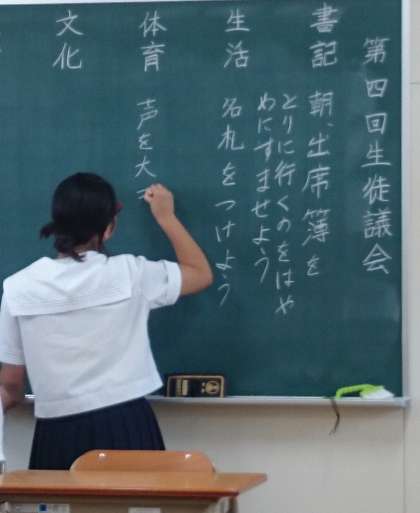 第四回生徒議会
書記 朝、出席簿を
とりに行くのをはや
めにすませよう
生活 名札をつけよう
体育 声を大
文化